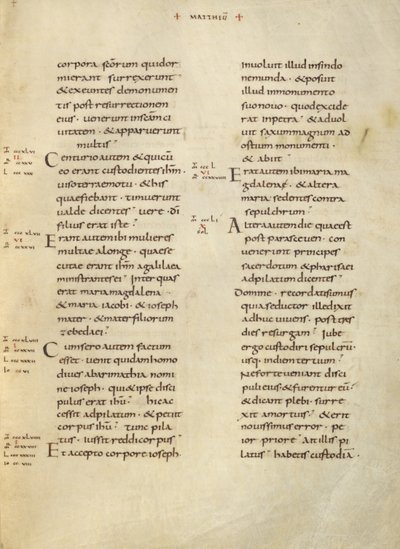 + MATTHEUS +
corpora scōrum qui dor
mierant surrexerunt
& exeuntes de monumen
tis post resurrectionem
eius · uenerunt in scām ci
uitatem · & apparuerunt
multis
Centurio autem & qui cū
eo erant custodientes ihm̄ ·
uiso terrae motu · & his
quae fiebant · timuerunt
ualde dicentes · uere · di
filius erat iste
Erant autem ibi mulieres
multae a longe · quae se
cutae erant ihm̄ a galilaea
ministrantes ei · Inter quas
erat maria magdalena
& maria iacobi · & ioseph
mater · & mater filiorum
zebedaei ·
Cum sero autem factum
esset · uenit quidam homo
diues ab arimathia nomi
ne ioseph · qui & ipse disci
pulus erat ihū · hic ac
cessit ad pilatum · & petiit
corpus ihū · tunc pila
tus · iussit reddi corpus
Et accepto corpore ioseph ·
inuoluit illud in sindo
ne munda · & posuit
illud in monumento
suo nouo · quod excide
rat in petra · & aduol
uit saxum magnum ad
ostium monumenti ·
& abiit
Erat autem ibi maria ma
gdalene · & altera
maria sedentes contra
sepulchrum
Altera autem die quae est
post parasceuen · con
uenerunt principes
sacerdotum & pharisaei
ad pilatum dicentes
Domine · recordati sumus
quia seductor ille dixit
adhuc uiuens · post tres
dies resurgam · Iube
ergo custodiri sepulcrū
usq· in diem tertium ·
Ne forte ueniant disci
puli eius · & furentur eū ·
& dicant plebi · surre
xit a mortuis · & erit
nouissimus error · pe
ior priore · Ait illis pi
latus · habetis custodiā ·